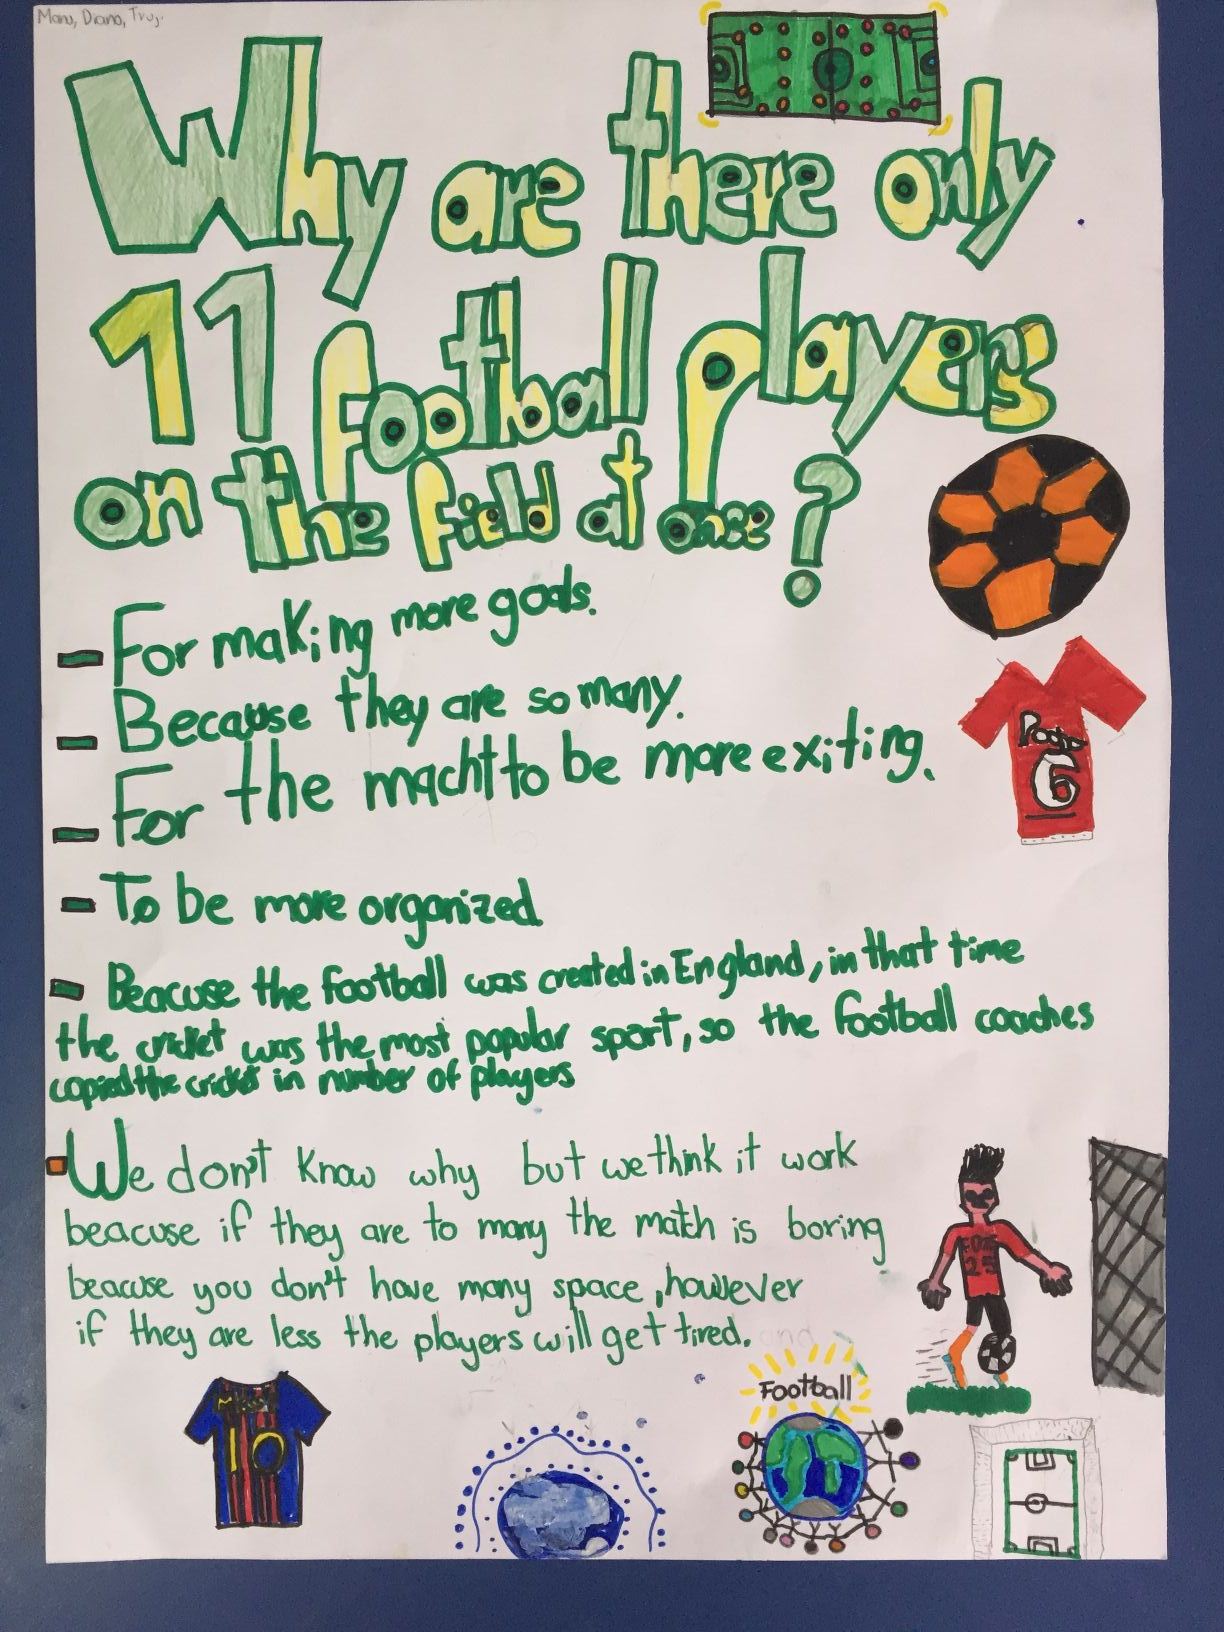 Manu, Diana, Truj.
Why are there only
11 football players
on the field at once?
- For making more goals.
- Because they are so many.
- For the macht to be more exiting.
- To be more organized
- Beacuse the football was created in England, in that time
the cricket was the most popular sport, so the football coaches
copied the cricket in number of players
We don't know why but we think it work
beacuse if they are to many the match is boring
beacuse you don't have many space, however
if they are less the players will get tired.
6
Football
Messi
10